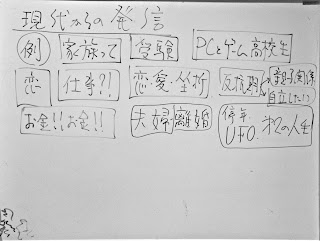 現代からの発信
例 家族って 受験 PCとゲーム高校生
恋 仕事?! 恋・愛・挫折 反抗期 親子関係
自立したい?
お金!!お金!! 夫婦・離婚 停年 第2の人生
UFO